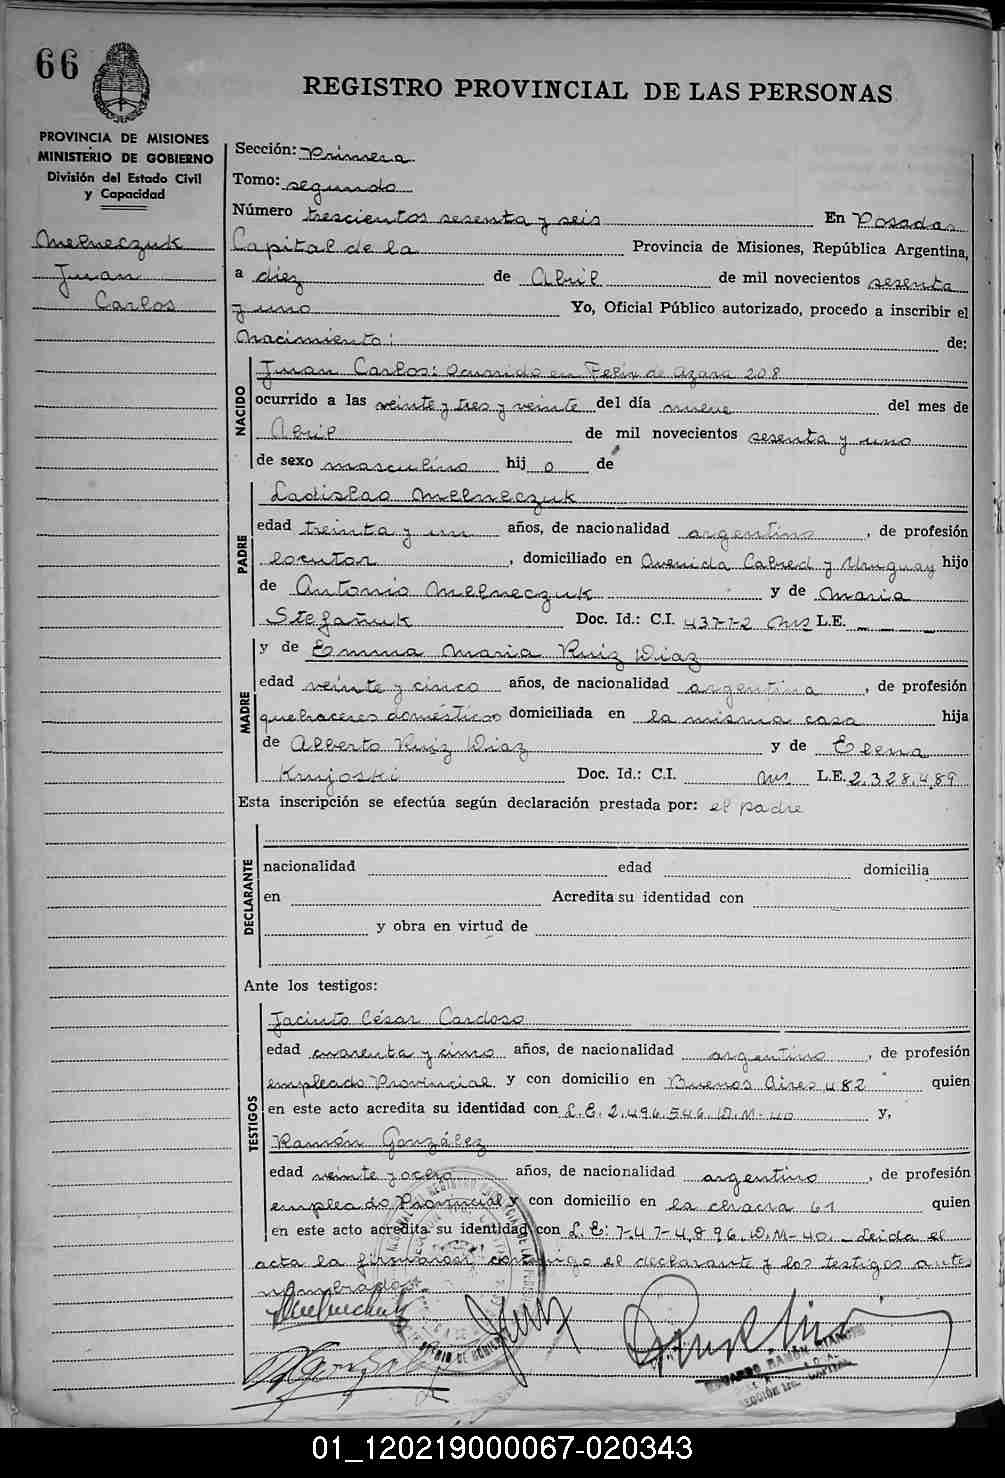 66
REGISTRO PROVINCIAL DE LAS PERSONAS
PROVINCIA DE MISIONES
MINISTERIO DE GOBIERNO
División del Estado Civil
y Capacidad
Melneczuk
Juan
Carlos
Sección: Primera
Tomo: segundo
Número trescientos sesenta y seis En Posadas
Capital de la Provincia de Misiones, República Argentina,
a diez de Abril de mil novecientos sesenta
y uno Yo, Oficial Público autorizado, procedo a inscribir el
Nacimiento: de:
NACIDO
Juan Carlos: Ocurrido en Felix de Azara 208
ocurrido a las veinte y tres y veinte del día nueve del mes de
Abril de mil novecientos sesenta y uno
de sexo masculino hij o de
PADRE
Ladislao Melneczuk
edad treinta y un años, de nacionalidad argentino, de profesión
locutor, domiciliado en Avenida Cabred y Uruguay hijo
de Antonio Melneczuk y de Maria
Stefañuk Doc. Id.: C.I. 43772 Mis L.E. _ _ _
MADRE
y de Emma Maria Ruiz Diaz
edad veinte y cinco años, de nacionalidad argentina, de profesión
quehaceres domésticos domiciliada en la misma casa hija
de Alberto Ruiz Diaz y de Elena
Knujoski Doc. Id.: C.I. Mis L.E. 2.328.489
Esta inscripción se efectúa según declaración prestada por: el padre
DECLARANTE
nacionalidad edad domicilia
en Acredita su identidad con
y obra en virtud de
Ante los testigos:
TESTIGOS
Jacinto César Cardoso
edad cuarenta y cinco años, de nacionalidad argentino, de profesión
empleado Provincial y con domicilio en Buenos Aires 482 quien
en este acto acredita su identidad con L.E. 2.496.546. D.M-40 y,
Ramón González
edad veinte y ocho años, de nacionalidad argentino, de profesión
empleado Provincial y con domicilio en la chacra 61 quien
en este acto acredita su identidad con L.E: 7.47-4.896. D.M-40. _ Leida el
acta la firmaron conmigo el declarante y los testigos antes
nombrados
EDUARDO RAMÓN
SECCIÓN 1RA. CAPITAL
01_120219000067-020343